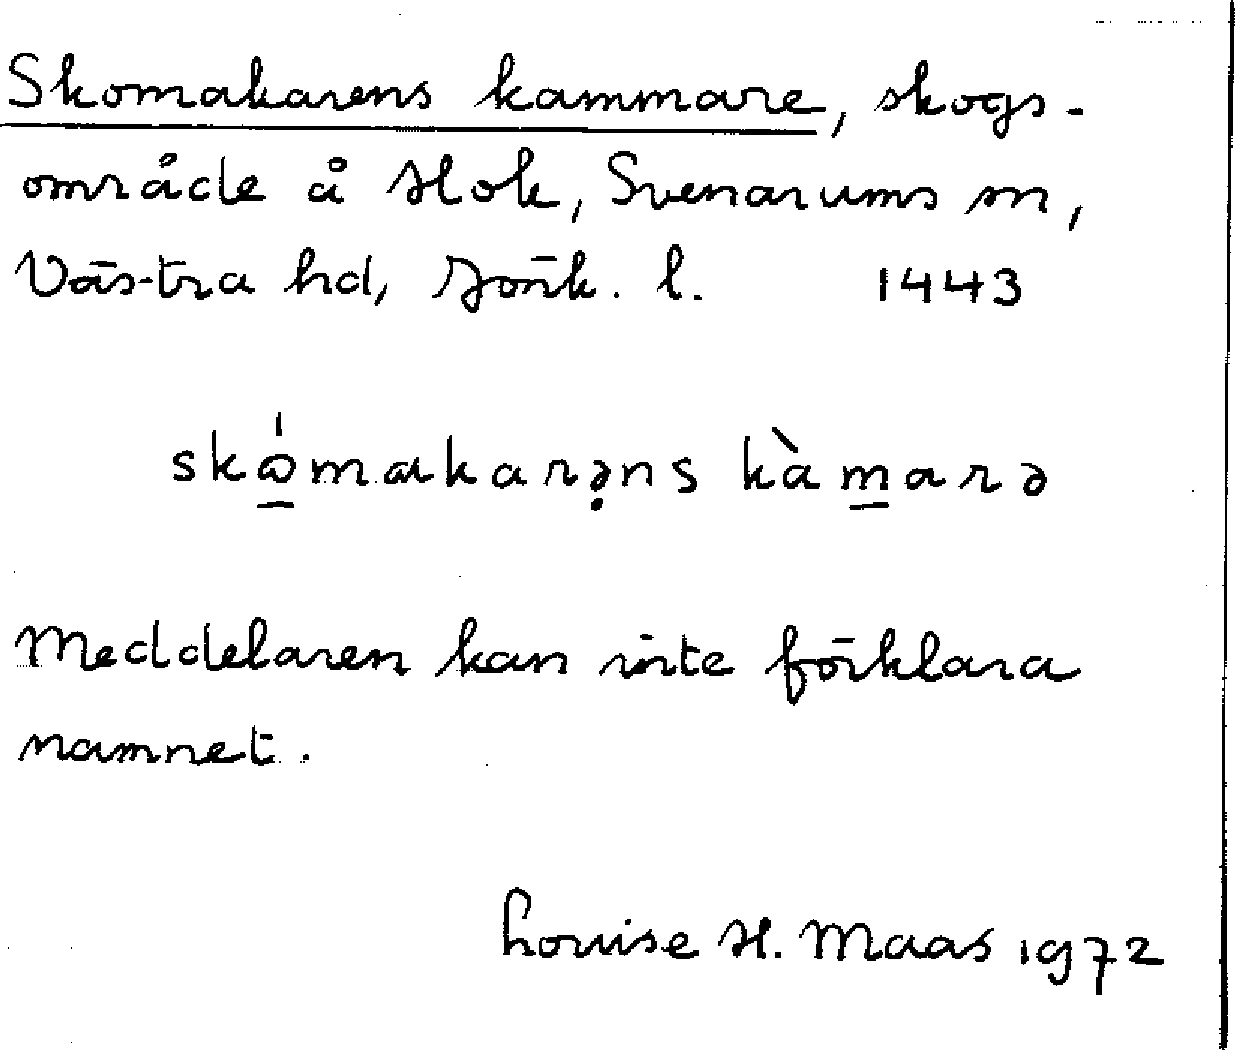 Skomakarens kammare, skogs-
område å Hok, Svenarums sn,
Västra hd, Jönk. l. 1443
skώ̲makarə̣ns kàm̲arə
Meddelaren kan inte förklara
namnet.
Louise H. Maas 1972